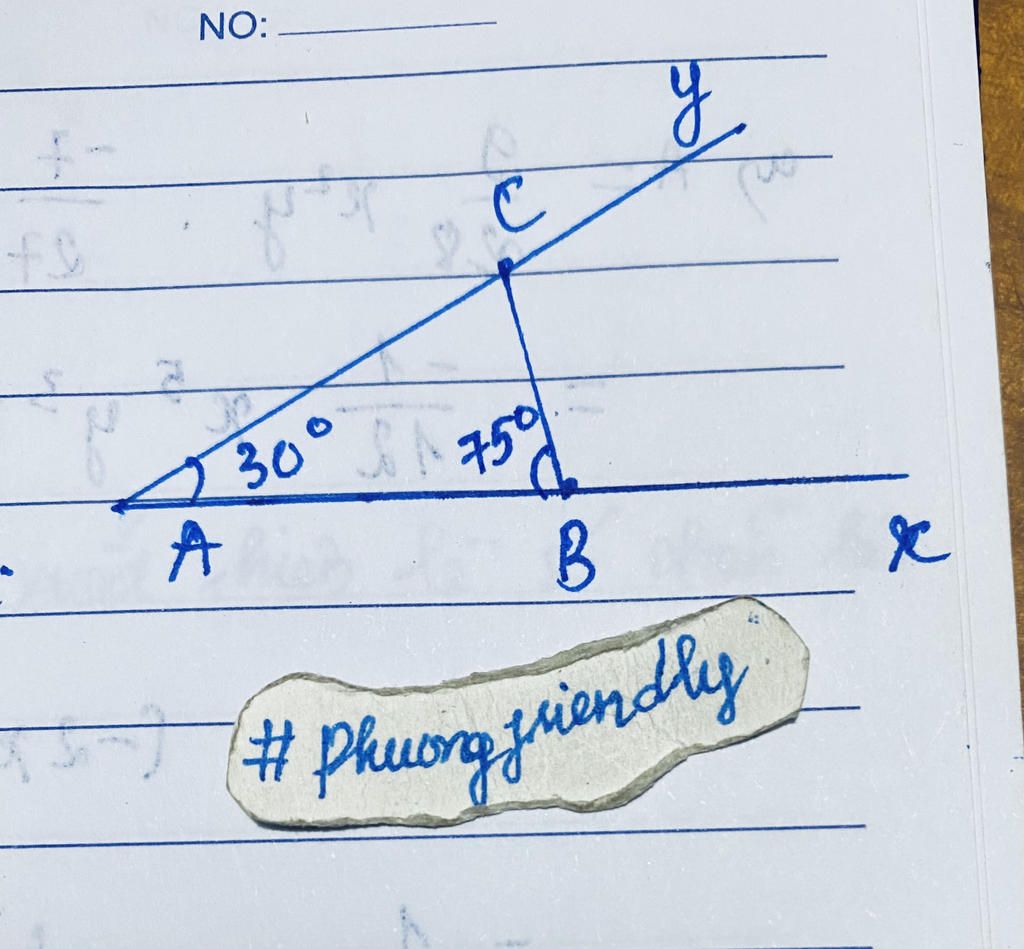 NO:
y
C
30° 75°
A B x
#Phuongfriendly